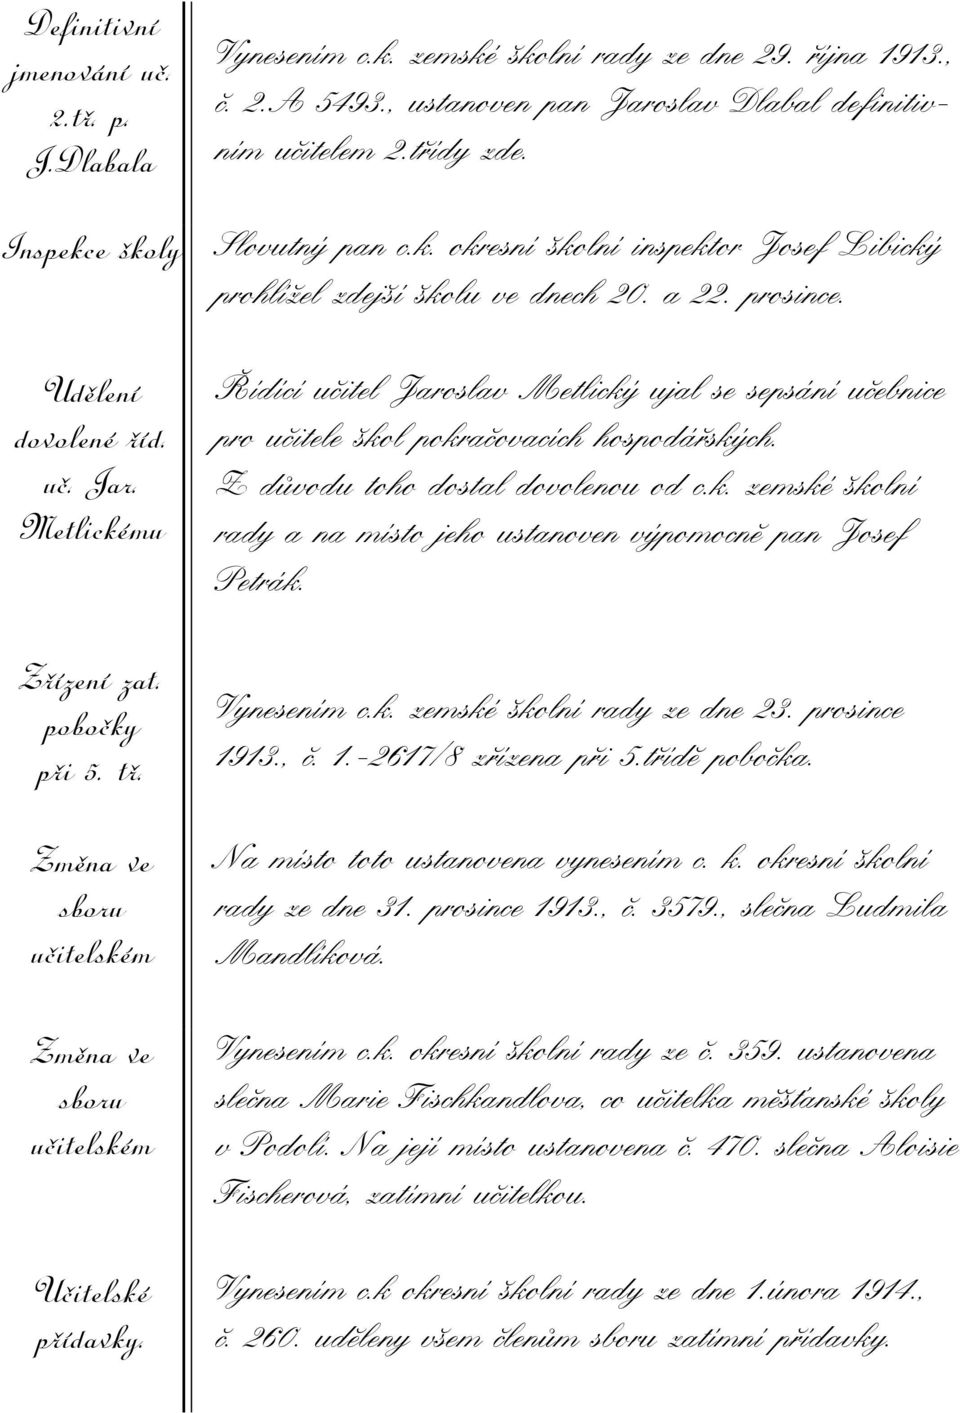 Definitivní
jmenování uč.
2.tř. p.
J.Dlabala
Vynesením c.k. zemské školní rady ze dne 29. října 1913.,
č. 2.A 5493., ustanoven pan Jaroslav Dlabal definitiv-
ním učitelem 2.třídy zde.
Inspekce školy
Slovutný pan c.k. okresní školní inspektor Josef Libický
prohlížel zdejší školu ve dnech 20. a 22. prosince.
Udělení
dovolené říd.
uč. Jar.
Metlickému
Řídící učitel Jaroslav Metlický ujal se sepsání učebnice
pro učitele škol pokračovacích hospodářských.
Z důvodu toho dostal dovolenou od c.k. zemské školní
rady a na místo jeho ustanoven výpomocně pan Josef
Petrák.
Zřízení zat.
pobočky
při 5. tř.
Vynesením c.k. zemské školní rady ze dne 23. prosince
1913., č. 1.-2617/8 zřízena při 5.třídě pobočka.
Změna ve
sboru
učitelském
Na místo toto ustanovena vynesením c. k. okresní školní
rady ze dne 31. prosince 1913., č. 3579., slečna Ludmila
Mandlíková.
Změna ve
sboru
učitelském
Vynesením c.k. okresní školní rady ze č. 359. ustanovena
slečna Marie Fischkandlova, co učitelka měšťanské školy
v Podolí. Na její místo ustanovena č. 470. slečna Aloisie
Fischerová, zatímní učitelkou.
Učitelské
přídavky.
Vynesením c.k okresní školní rady ze dne 1.února 1914.,
č. 260. uděleny všem členům sboru zatímní přídavky.